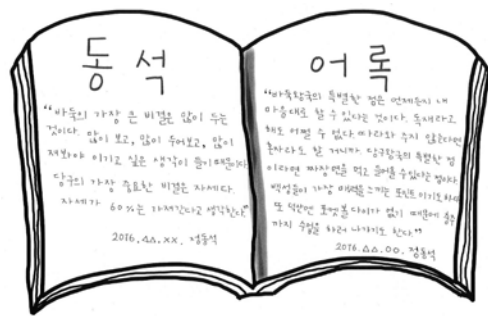 동석
"바둑의 가장 큰 비결은 많이 두는
것이다. 많이 보고, 많이 두어보고, 많이
져봐야 이기고 싶은 생각이 들기 때문이다.
당구의 가장 중요한 비결은 자세다.
자세가 60%는 가져간다고 생각한다."
2016.△△.××. 정동석
어록
"바둑왕국의 특별한 점은 언제든지 내
마음대로 할 수 있다는 것이다. 독재라고
해도 어쩔 수 없다. 따라와 주지 않는다면
혼자라도 할 거니까. 당구왕국의 특별한 점
이라면 짜장면을 먹고 들어올 수 있다는 점이다
백성들이 가장 매력을 느끼는 포인트이기도 하다
또 당연 포켓볼 다이가 없기 때문에
까지 수업을 하러 나가기도 한다."
2016.△△.○○. 정동석